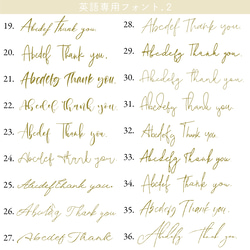 英語専用フォント.2
19. Abcdef Thank you.
20. Abcdef Thank you,
21. Abcdefg Thank you
22. Abcdef Thank you.
23. Abcdef Thank you.
24. Abcdef Thank you
25. Abcdef Thank you.
26. Abcdefg Thank you
27. Abcdef Thank
28. Abcdef Thank you.
29. Abcdefg Thank you.
30. Abcdefg Thank you
31. Abcdefg Thank you
32. Abcdef Thank you
33. Abcdefg Thank you
34. Abcdef Thank you.
35. Abcdef Thank you.
36. Abcdef Thank you.